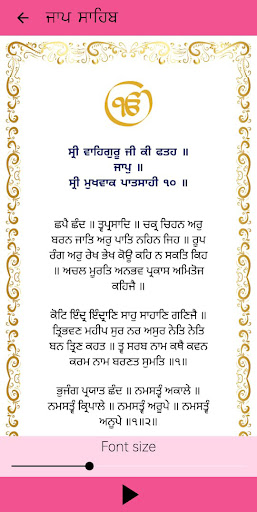 ਜਾਪ ਸਾਹਿਬ
ੴ
ਸ੍ਰੀ ਵਾਹਿਗੁਰੂ ਜੀ ਕੀ ਫਤਹ ॥
ਜਾਪੁ ॥
ਸ੍ਰੀ ਮੁਖਵਾਕ ਪਾਤਸਾਹੀ ੧੦ ॥
ਛਪੈ ਛੰਦ ॥ ਤ੍ਵਪ੍ਰਸਾਦਿ ॥ ਚਕ੍ਰ ਚਿਹਨ ਅਰੁ
ਬਰਨ ਜਾਤਿ ਅਰੁ ਪਾਤਿ ਨਹਿਨ ਜਿਹ ॥ ਰੂਪ
ਰੰਗ ਅਰੁ ਰੇਖ ਭੇਖ ਕੋਊ ਕਹਿ ਨ ਸਕਤਿ ਕਿਹ
॥ ਅਚਲ ਮੂਰਤਿ ਅਨਭਵ ਪ੍ਰਕਾਸ ਅਮਿਤੋਜ
ਕਹਿਜੈ ॥
ਕੋਟਿ ਇੰਦ੍ਰ ਇੰਦ੍ਰਾਣਿ ਸਾਹੁ ਸਾਹਾਣਿ ਗਣਿਜੈ ॥
ਤ੍ਰਿਭਵਣ ਮਹੀਪ ਸੁਰ ਨਰ ਅਸੁਰ ਨੇਤਿ ਨੇਤਿ
ਬਨ ਤ੍ਰਿਣ ਕਹਤ ॥ ਤ੍ਵ ਸਰਬ ਨਾਮ ਕਥੈ ਕਵਨ
ਕਰਮ ਨਾਮ ਬਰਣਤ ਸੁਮਤਿ ॥੧॥
ਭੁਜੰਗ ਪ੍ਰਯਾਤ ਛੰਦ ॥ ਨਮਸਤ੍ਵੰ ਅਕਾਲੇ ॥
ਨਮਸਤ੍ਵੰ ਕ੍ਰਿਪਾਲੇ ॥ ਨਮਸਤ੍ਵੰ ਅਰੂਪੇ ॥ ਨਮਸਤ੍ਵੰ
ਅਨੂਪੇ ॥੧॥੨॥
Font size